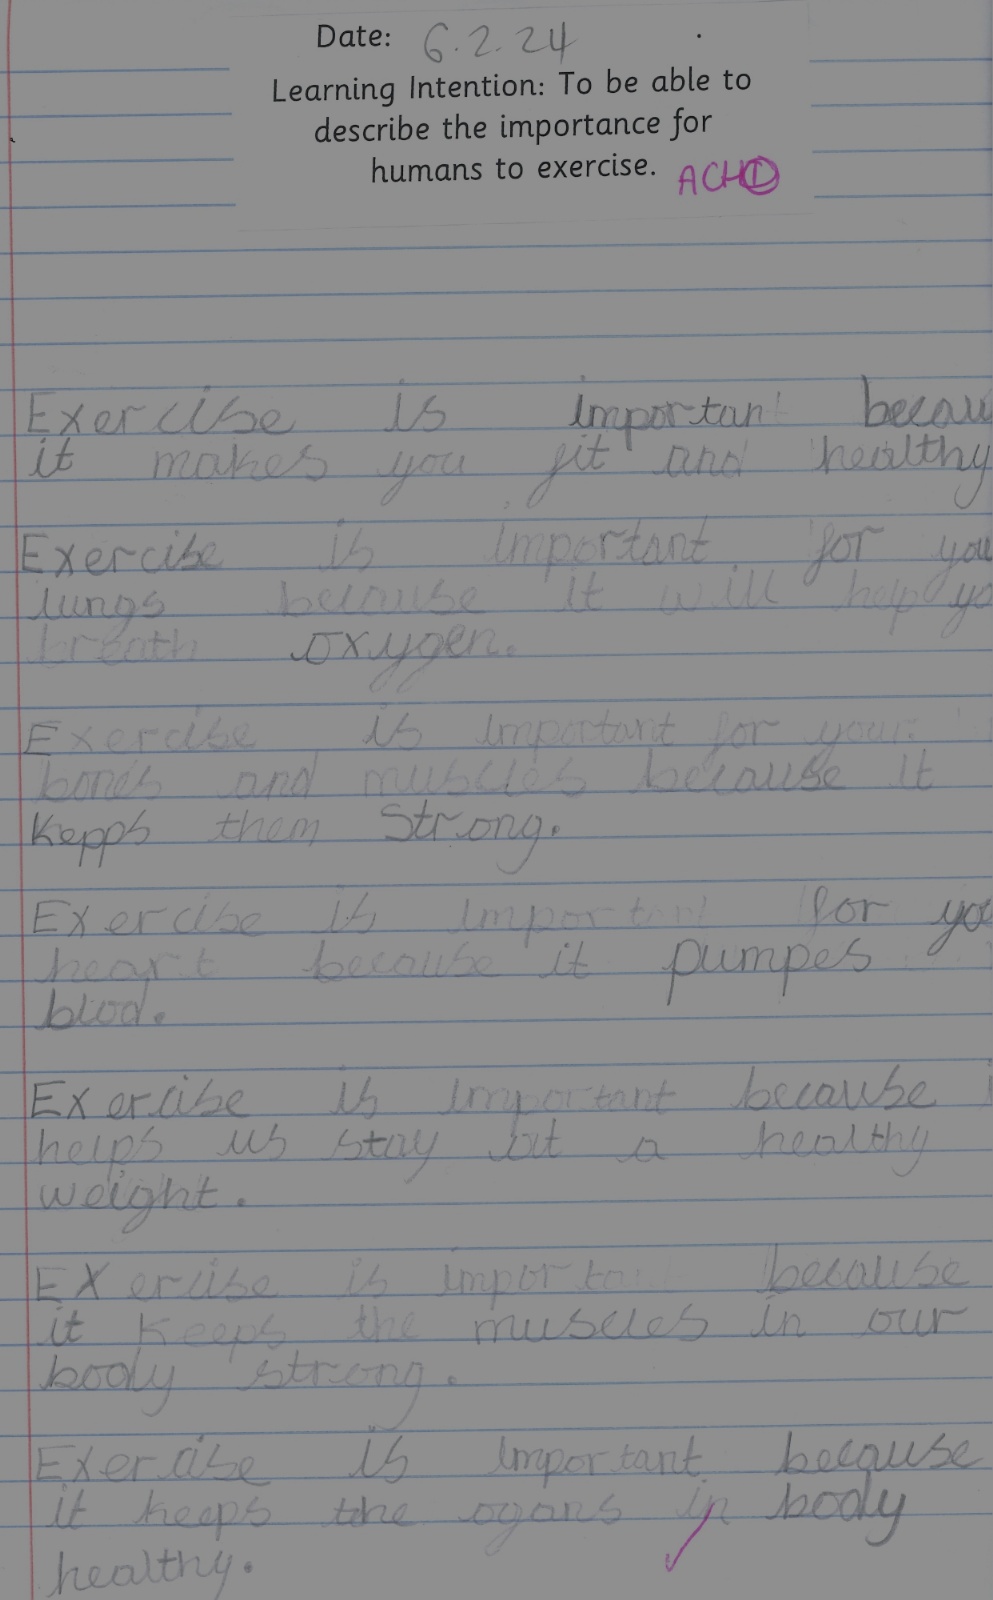 Date: 6.2.24
Learning Intention: To be able to
describe the importance for
humans to exercise.
ACH I
Exercise is importan becau
it makes you fit and healthy
Exercise is important for you
lungs because it will help yo
breath oxygen.
Exercise is important for your
bones and muscles because it
kepps them strong.
Exercise is important for you
heart because it pumpes
blod.
Exercise is important because
helps us stay at a healthy
weight.
Exercise is importa because
it keeps the muscles in our
body strong.
Exercise is important because
it keeps the ogans in body
healthy.